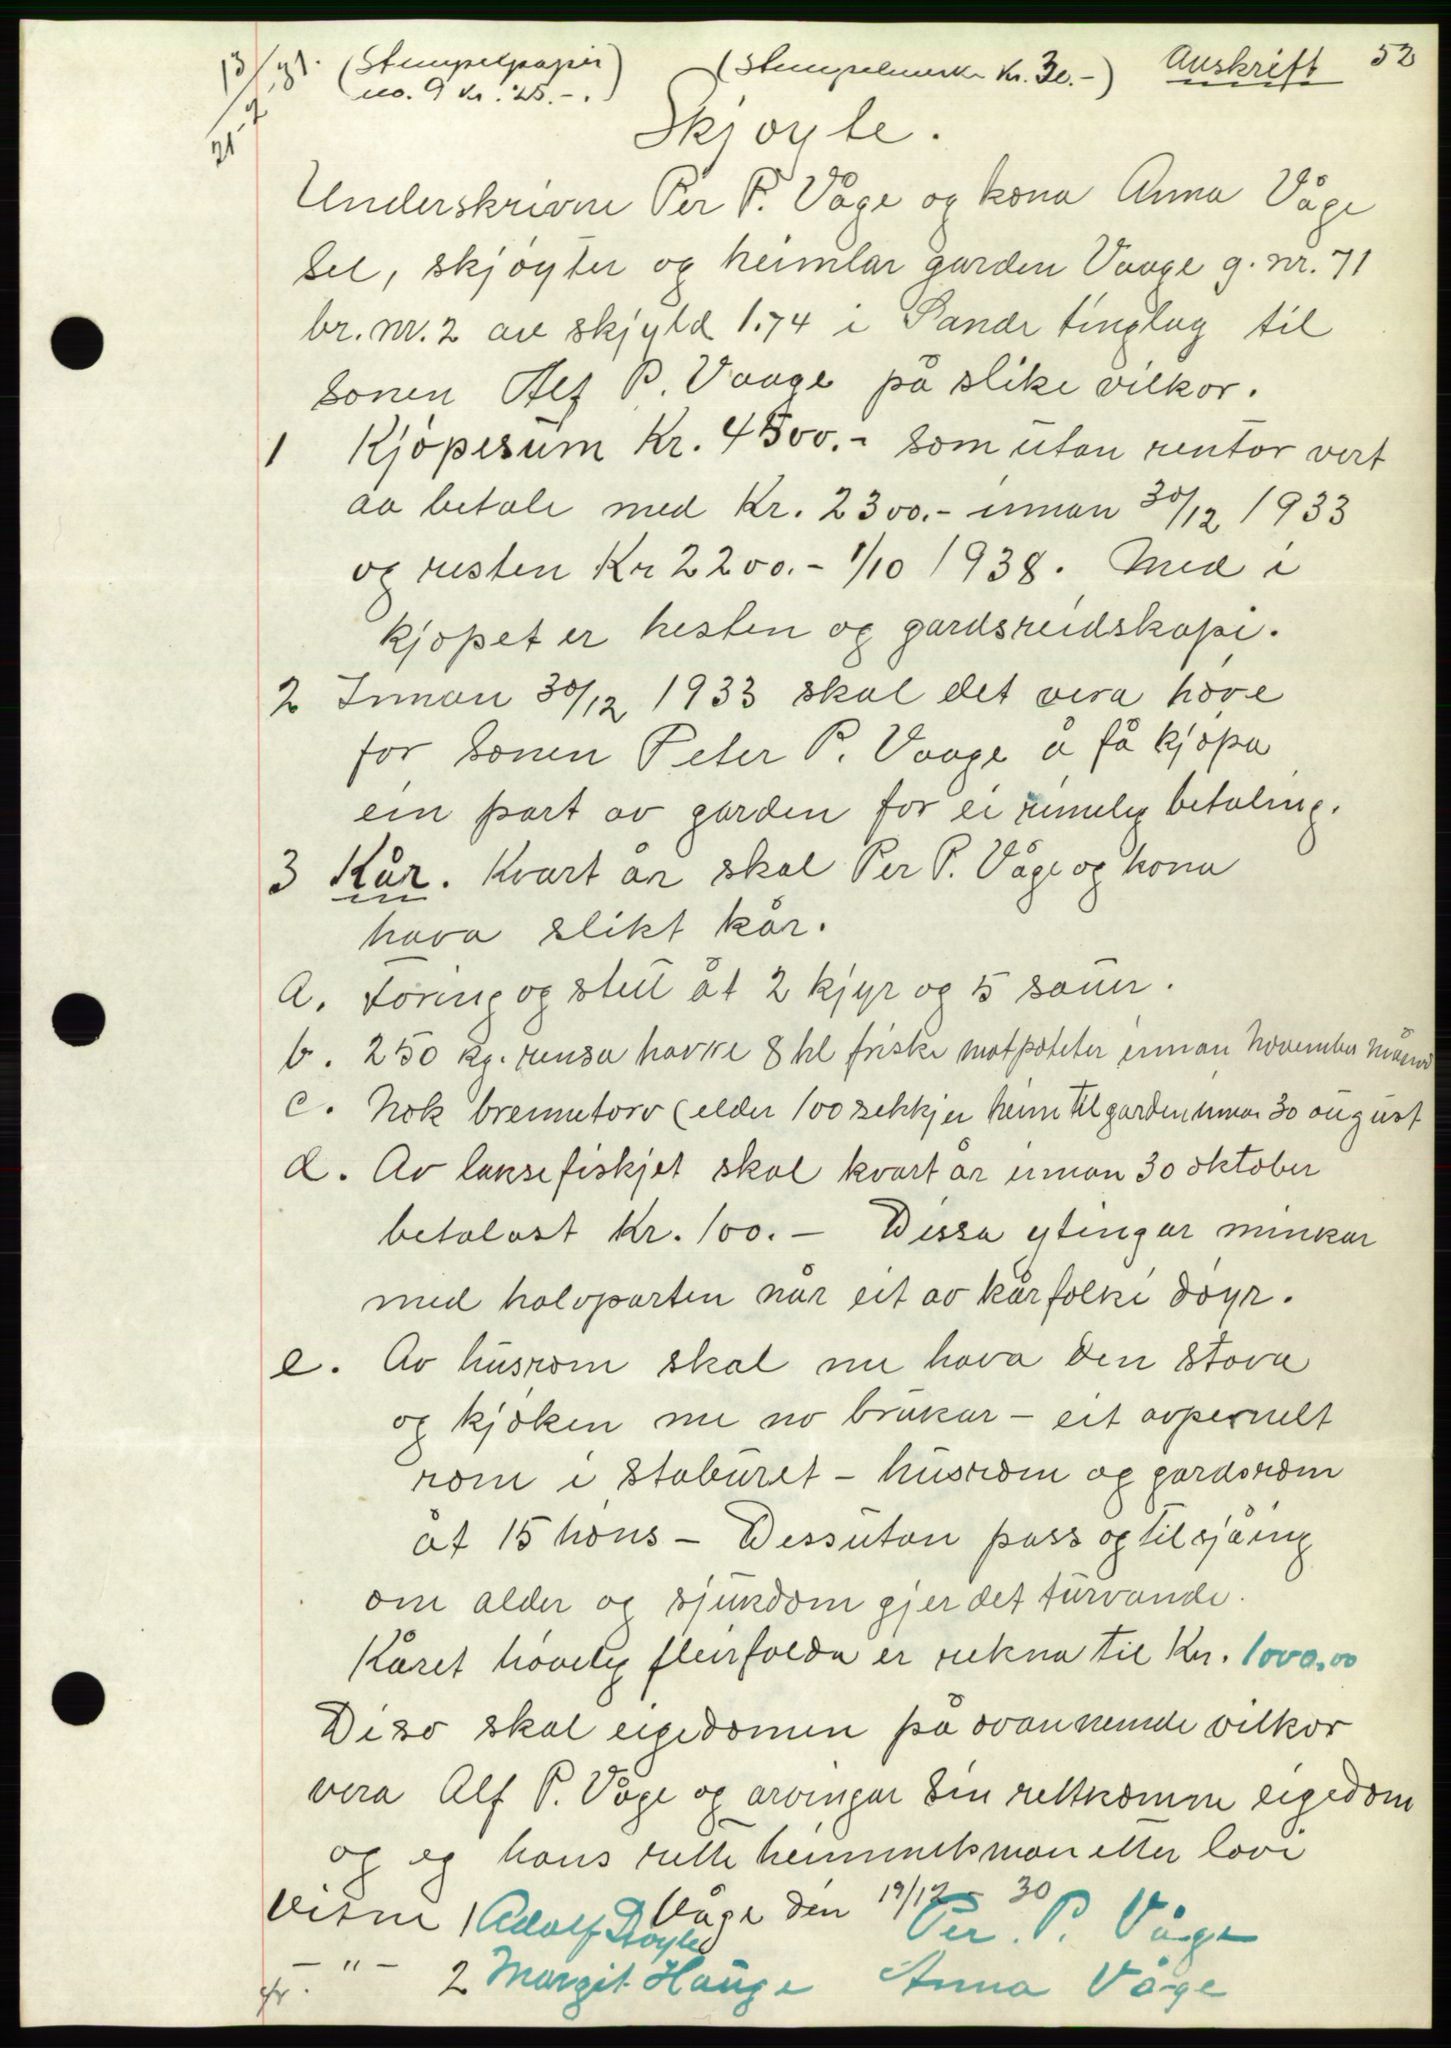 13/31. (Stempelpapir (Stempelmerke Kr. 30.-) Auskrift 52
21-2 no. 9 kr. 25.-.)
Skjøyte.
Underskrivne Per P. Våge og kona Anna Våge
sel, skjøyter og heimlar garden Vaage g. nr. 71
br. nr. 2 av skjyld 1.74 i Sande tinglag til
sonen Alf P. Vaage på slike vilkor.
1 Kjøpesum Kr. 4500.- som utan rentor vert
aa betale med Kr. 2300.- innan 30/12 1933
og resten Kr 2200.- 1/10 1938. Med i
kjøpet er hesten og gardsreidskapi.
2 Innan 30/12 1933 skal det vera høve
for sonen Peter P. Vaage å få kjøpa
ein part av garden for ei rimeleg betaling.
3 Kår. Kvart år skal Per P. Våge og kona
hava slikt kår.
a. Foring og stell åt 2 kjyr og 5 sauer.
b. 250 kg. rensa havre 8 hl friske matpoteter innan November månad
c. Nok brennetorv (elder 100 sekkjer heim til garden innan 30 august
d. Av laksefiskjet skal kvart år innan 30 oktober
betalast Kr. 100. – Dissa ytingar minkar
med halvparten når eit av kårfolki døyr.
e. Av husrom skal me hava den stova
og kjøken me no brukar – eit avpenelt
rom i staburet – husrom og gardsrom
åt 15 høns – Dessutan pass og tilsjåing
om alder og sjukdom gjer det turvande.
Kåret høveleg fleirfalda er rekna til Kr. 1000.00
Diso skal eigedomen på ovannemde vilkor
vera Alf P. Våge og arvingar sin rettkomne eigedom
og eg hans rette heimmelsman etter lovi
Våge den 19/12 - 30
Vitne 1 Adolf Røyle Per. P. Våge
– " – 2 Margit Hauge Anna Våge